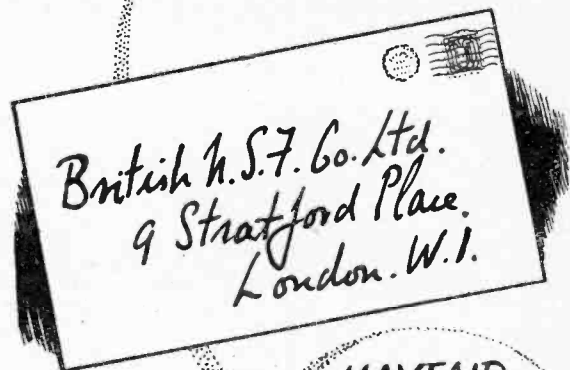 British N.S.F. Co. Ltd.
9 Stratford Place.
London. W.1.
MAYFAIR